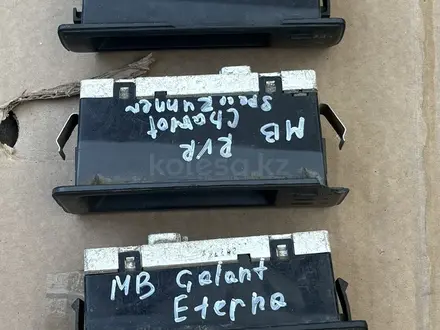 MB
RVR
Chariot
Space Runner
kolesa.kz
MB Galant
Eterna